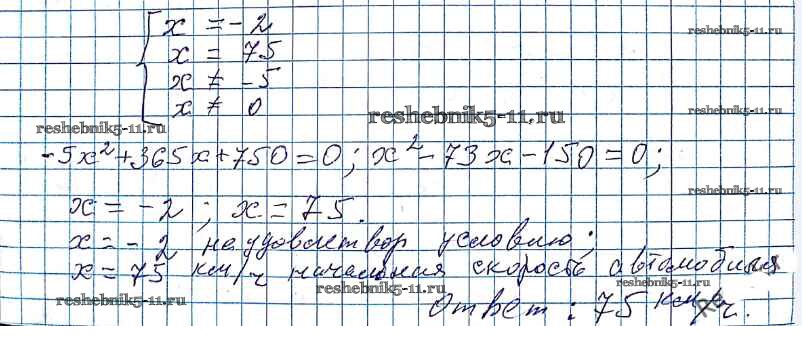 x = -2
reshebnik5-11.ru
x = 75
x ≠ -5
x ≠ 0
reshebnik5-11.ru
reshebnik5-11.ru
reshebnik5-11.ru
-5x² + 365x + 750 = 0; x² - 73x - 150 = 0;
reshebnik5-11.ru
x = -2; x = 75.
x = -2 не удовлетвор условию;
x = 75 км/ч начальная скорость автомобиля
reshebnik5-11.ru
reshebnik5-11.ru
reshebnik5-11.ru
Ответ: 75 км/ч.